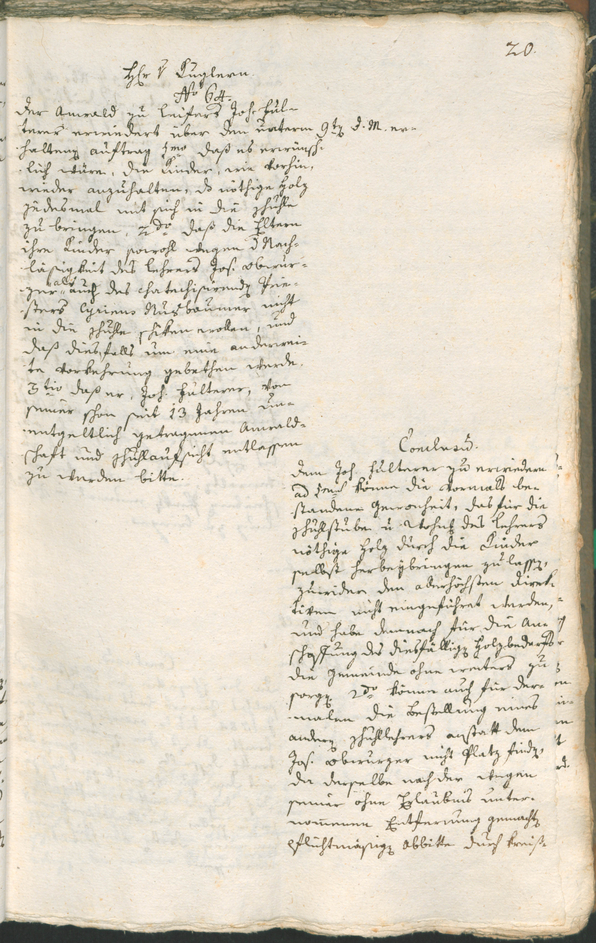 20.
Hr v Kuglern
No 64.
Der Anwald zu Leifers Joh: Ful-
terer erwiedert über den unterm 9ten d. M. er-
haltenen auftrag 1mo daß es erwünsch-
lich wäre, die Kinder, wie vorhin,
wieder anzuhalten, das nöthige Holz
jedesmal mit sich in die Schulle
zu bringen, 2do daß die Eltern
ihre Kinder sowohl wegen d Nach-
läßigkeit des Lehrers Jos. Obwur-
zer als auch des chatechisirendn Prie-
sters Nußbaumer nicht
in die Schulle schiken wollen, und
daß diesfalls um eine anderwei-
te Vorkehrung gebethen werde.
3tio daß er, Joh. Fulterer, von
seiner schon seit 13 Jahren un-
entgeltlich getragenen Anwald-
schaft und Schullaufsicht entlassen
zu werden bitte.
Conclusum.
Dem Joh. Fulterer zu erwiedern
ad 1mum könne die vormals be-
standene Gewohnheit, das für die
Schullstube u. des Lehrers
nöthige Holz durch die Kinder
selbst herbeybringen zu lassen,
zuwider den allerhöchsten Direk-
tiven nicht eingeführet werden,
und habe demnach für die An-
schaffung des diesfälligen Holzbedarfs
die Gemeinde ohne weiters zu
sorgen. 2do könne auch für der-
malen die Bestellung eines
andern Schullehrers anstatt dem
Jos. Obwurzer nicht Platz finden,
da derselbe nach der wegen
seiner ohne Erlaubnis unter-
nommenen Entfernung gemachten
pflichtmäßigen Abbitte durch